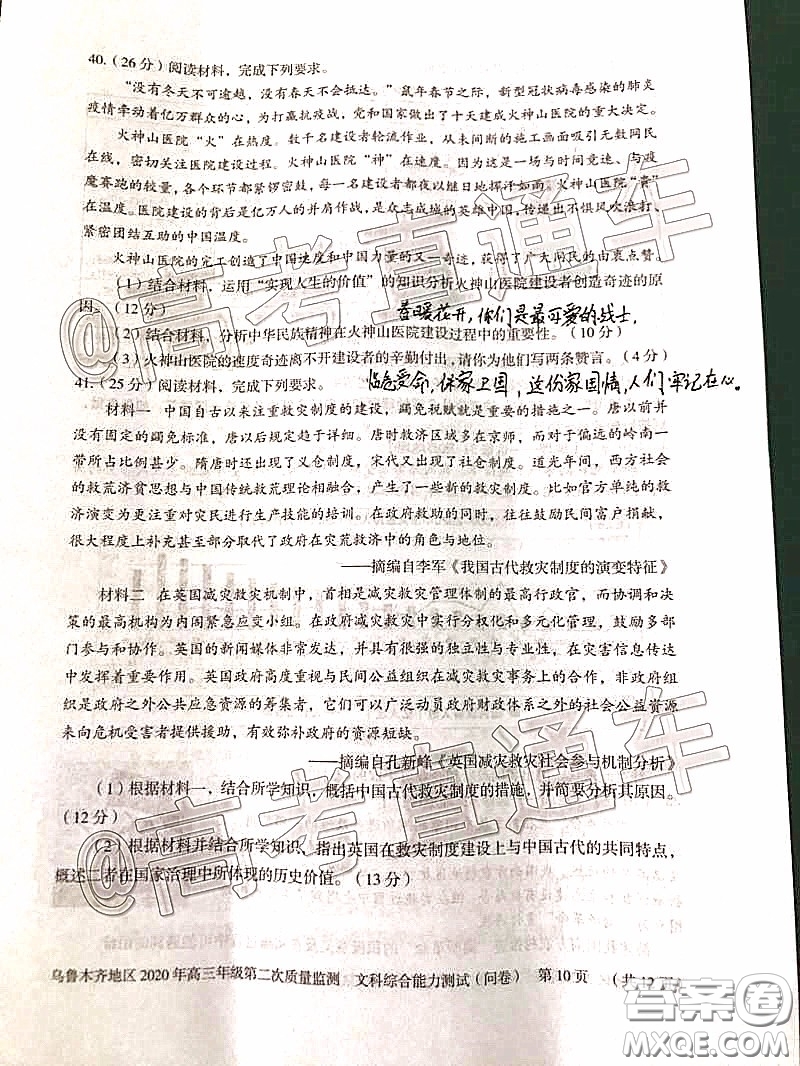 40.（26分）阅读材料，完成下列要求。
“没有冬天不可逾越，没有春天不会抵达。”鼠年春节之际，新型冠状病毒感染的肺炎
疫情牵动着亿万群众的心，为打赢抗疫战，党和国家做出了十天建成火神山医院的重大决定。
火神山医院“火”在热度。数千名建设者轮流作业，从未间断的施工画面吸引无数网民
在线，密切关注医院建设过程。火神山医院“神”在速度。因为这是一场与时间竞速、与疫
魔赛跑的较量，各个环节都紧锣密鼓，每一名建设者都夜以继日地挥汗如雨。火神山医院“贵”
在温度。医院建设的背后是亿万人的并肩作战，是众志成城的英雄中国，传递出不惧风吹浪打、
紧密团结互助的中国温度。
火神山医院的完工创造了中国速度和中国力量的又一奇迹，获得了广大网民的由衷点赞。
（1）结合材料，运用“实现人生的价值”的知识分析火神山医院建设者创造奇迹的原
因。（12分）
春暖花开，你们是最可爱的战士，
（2）结合材料，分析中华民族精神在火神山医院建设过程中的重要性。（10分）
（3）火神山医院的速度奇迹离不开建设者的辛勤付出，请你为他们写两条赞言。（4分）
临危受命，保家卫国，这份家国情，人们牢记在心。
41.（25分）阅读材料，完成下列要求。
材料一 中国自古以来注重救灾制度的建设，蠲免税赋就是重要的措施之一。唐以前并
没有固定的蠲免标准，唐以后规定趋于详细。唐时救济区域多在京师，而对于偏远的岭南一
带所占比例甚少。隋唐时还出现了义仓制度，宋代又出现了社仓制度。道光年间，西方社会
的救荒济贫思想与中国传统救荒理论相融合，产生了一些新的救灾制度。比如官方单纯的救
济演变为更注重对灾民进行生产技能的培训。在政府救助的同时，往往鼓励民间富户捐献，
很大程度上补充甚至部分取代了政府在灾荒救济中的角色与地位。
——摘编自李军《我国古代救灾制度的演变特征》
材料二 在英国减灾救灾机制中，首相是减灾救灾管理体制的最高行政官，而协调和决
策的最高机构为内阁紧急应变小组。在政府减灾救灾中实行分权化和多元化管理，鼓励多部
门参与和协作。英国的新闻媒体非常发达，并具有很强的独立性与专业性，在灾害信息传达
中发挥重要作用。英国政府高度重视与民间公益组织在减灾救灾事务上的合作，非政府组
织是政府之外公共应急资源的筹集者，它们可以广泛动员政府财政体系之外的社会公益资源
来向危机受害者提供援助，有效弥补政府的资源短缺。
——摘编自孔新峰《英国减灾救灾社会参与机制分析》
（1）根据材料一，结合所学知识，概括中国古代救灾制度的措施，并简要分析其原因。
（12分）
（2）根据材料并结合所学知识，指出英国在救灾制度建设上与中国古代的共同特点，
概述二者在国家治理中所体现的历史价值。（13分）
乌鲁木齐地区2020年高三年级第二次质量监测 文科综合能力测试（问卷） 第10页 （共12页）
@高考直通车
@高考直通车
答案卷
MXQE.COM